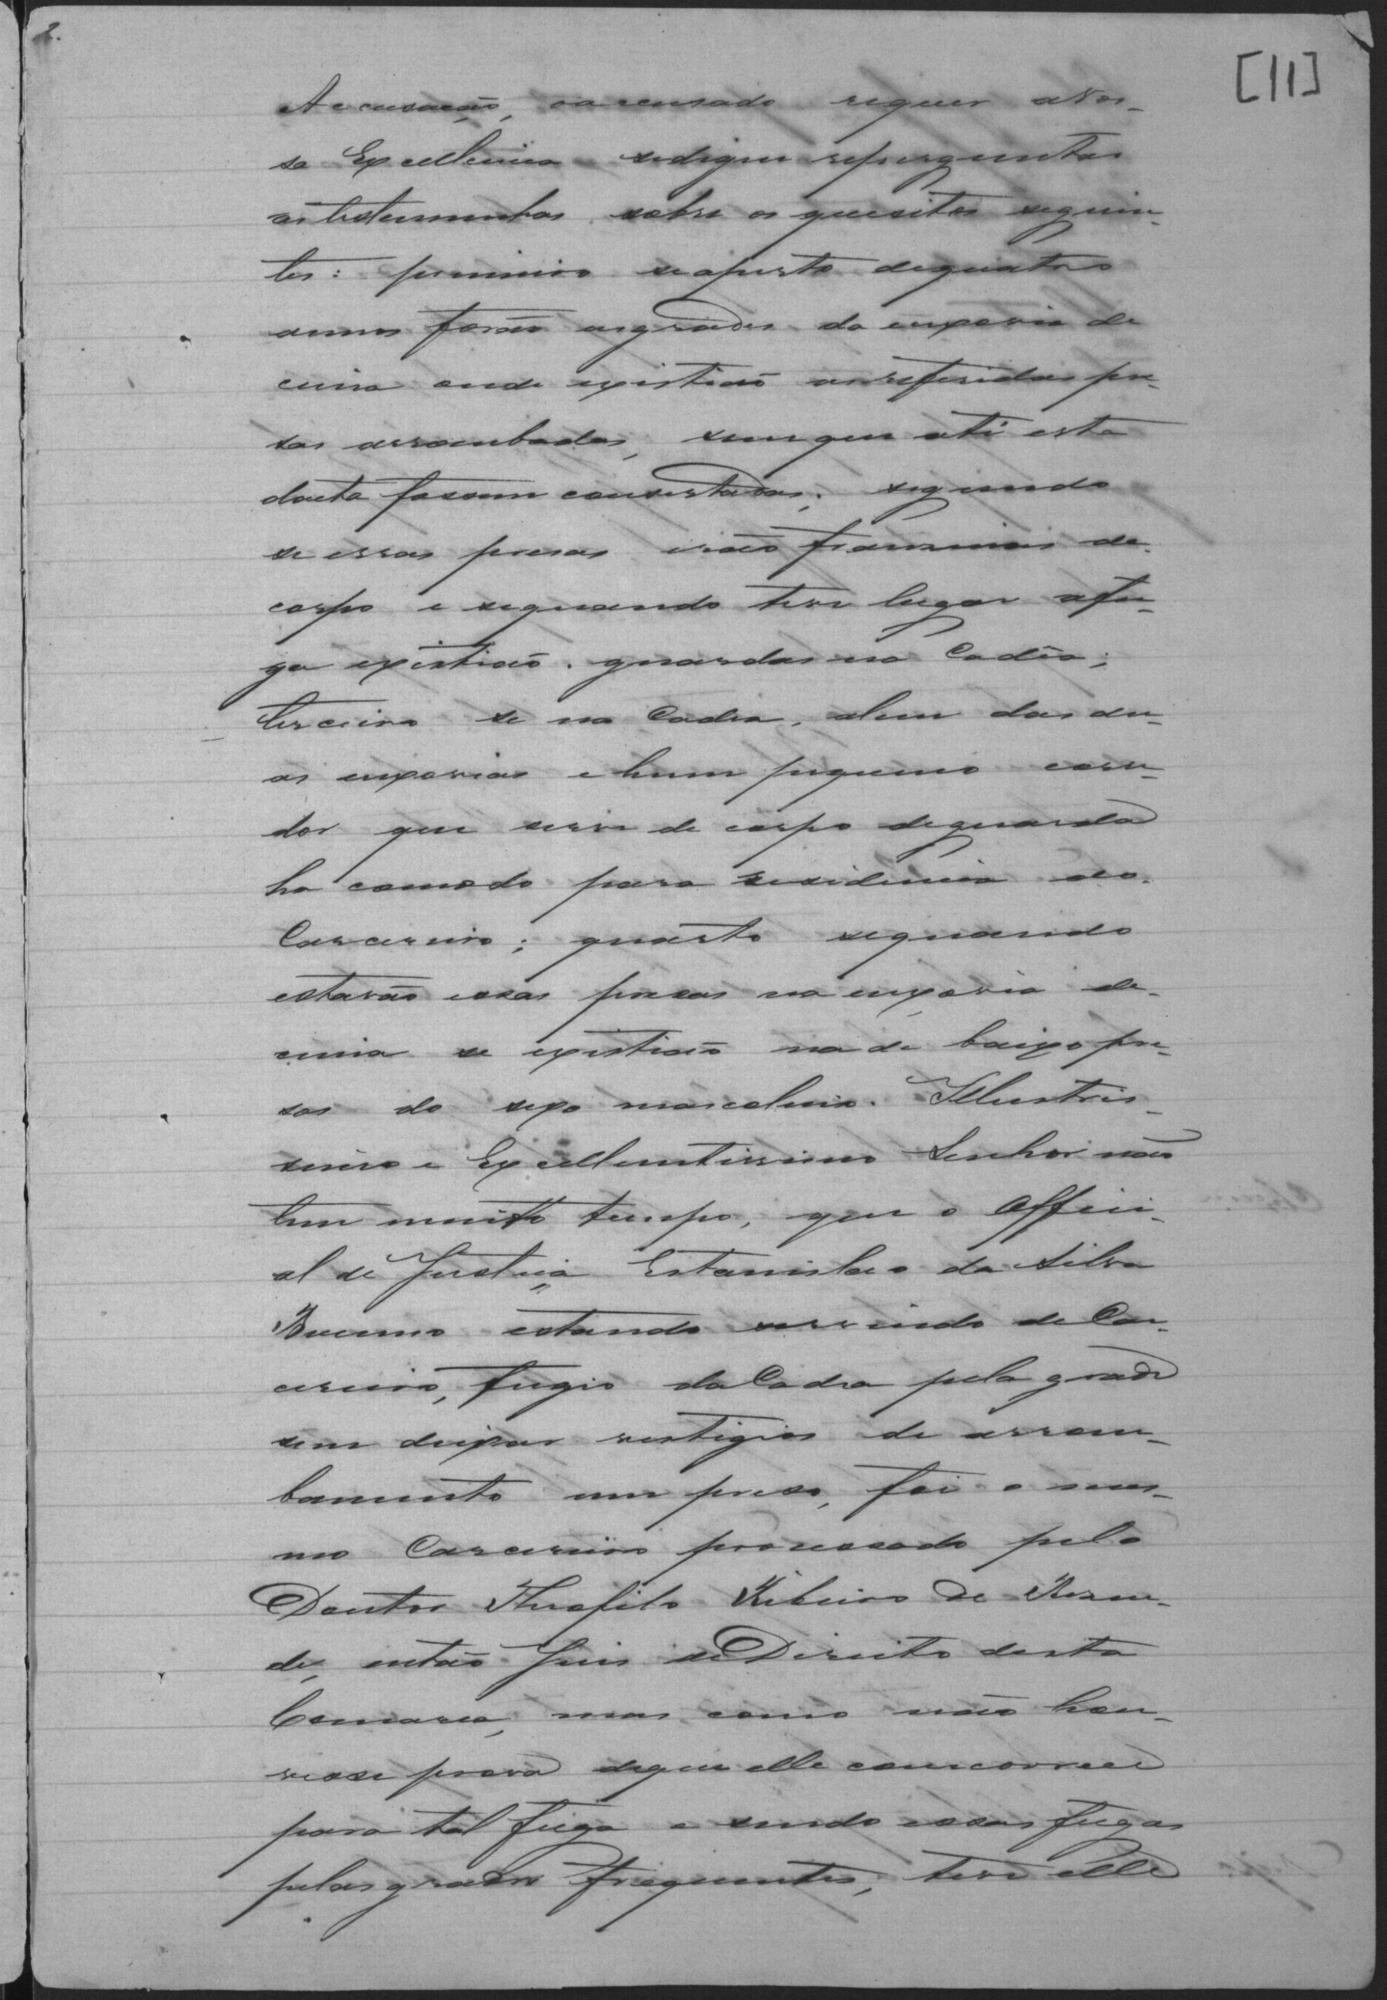 [11]
Accusação, oaccusado requer aVos-
sa Excellencia sedigne reperguntar
ástestemunhas sobre os quesitos seguin-
tes: primeiro seaperto dequatro
annos forão asgrades da enxovia de
cima onde existião asreferidas pre-
sas arrombadas, semque até esta
dacta fossem consertadas; segundo
se essas presas erão franzinas de
corpo e sequando teve lugar afu-
ga existião guardas na Cadêa;
terceiro se na Cadea, alem das du-
as enxovias e hum pequeno corre-
dor que serve de corpo deguarda
ha comodo para residencia do
Carcereiro; quarto sequando
estavão essas presas na enxovia de
cima se existião na de baixo pre-
sos do sexo masculino. Illustris-
simo e Excellentissimo Senhor não
tem muito tempo, que o Offici-
al de Justiça Estanislao da Silva
Bueno estando servindo de Car-
cereiro, fugio daCadea pela grade
sem deixar vestigios de arrom-
bamento um preso, foi o mes-
mo Carcereiro processado pelo
Doutor Theofilo Ribeiro de Resen-
de, então Juis deDireito desta
Comarca, mas como não hou-
vesse prova deque elle concorrece
para tal fuga e sendo essas fugas
pelas grades frequentes, teve elle